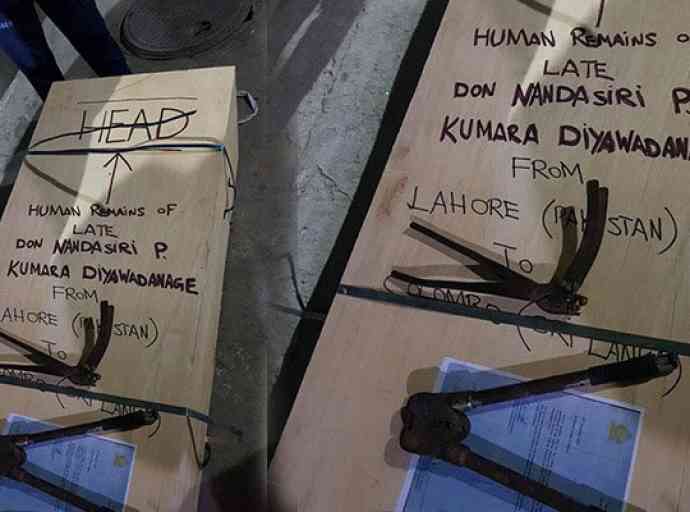 HEAD
HUMAN REMAINS OF
LATE
DON NANDASIRI P.
KUMARA DIYAWADANAGE
FROM
LAHORE (PAKISTAN)
TO
HUMAN REMAINS O
LATE
DON NANDASIRI P.
KUMARA DIYAWADANA
FROM
LAHORE (PAKISTAN)
TO
COLOMBO (SRI LANKA